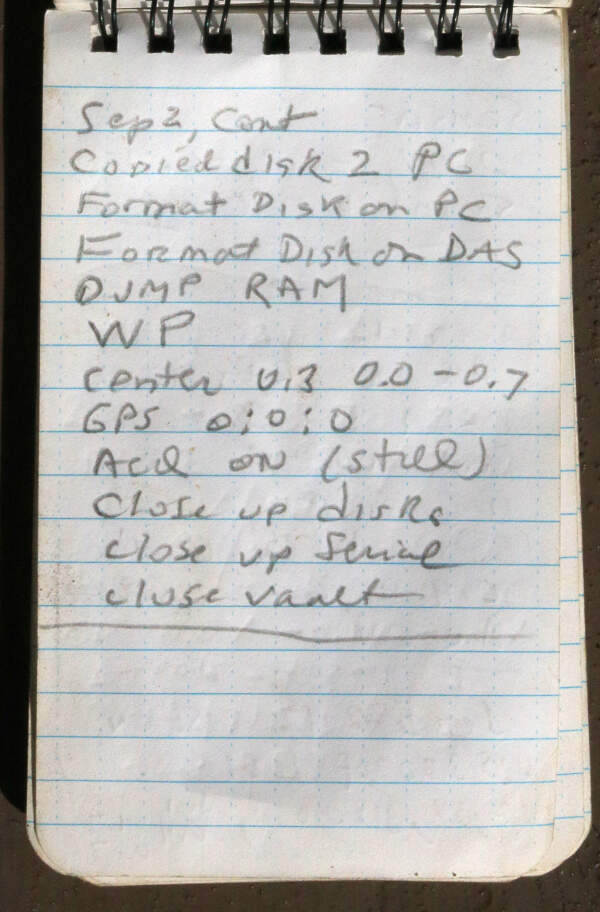 Sep 2, Cont
Copied disk 2 PC
Format Disk on PC
Format Disk on DAS
DUMP RAM
WP
center 0.3 0.0 -0.7
GPS 0:0:0
Acq ON (still)
Close up disks
close up Serial
close vault